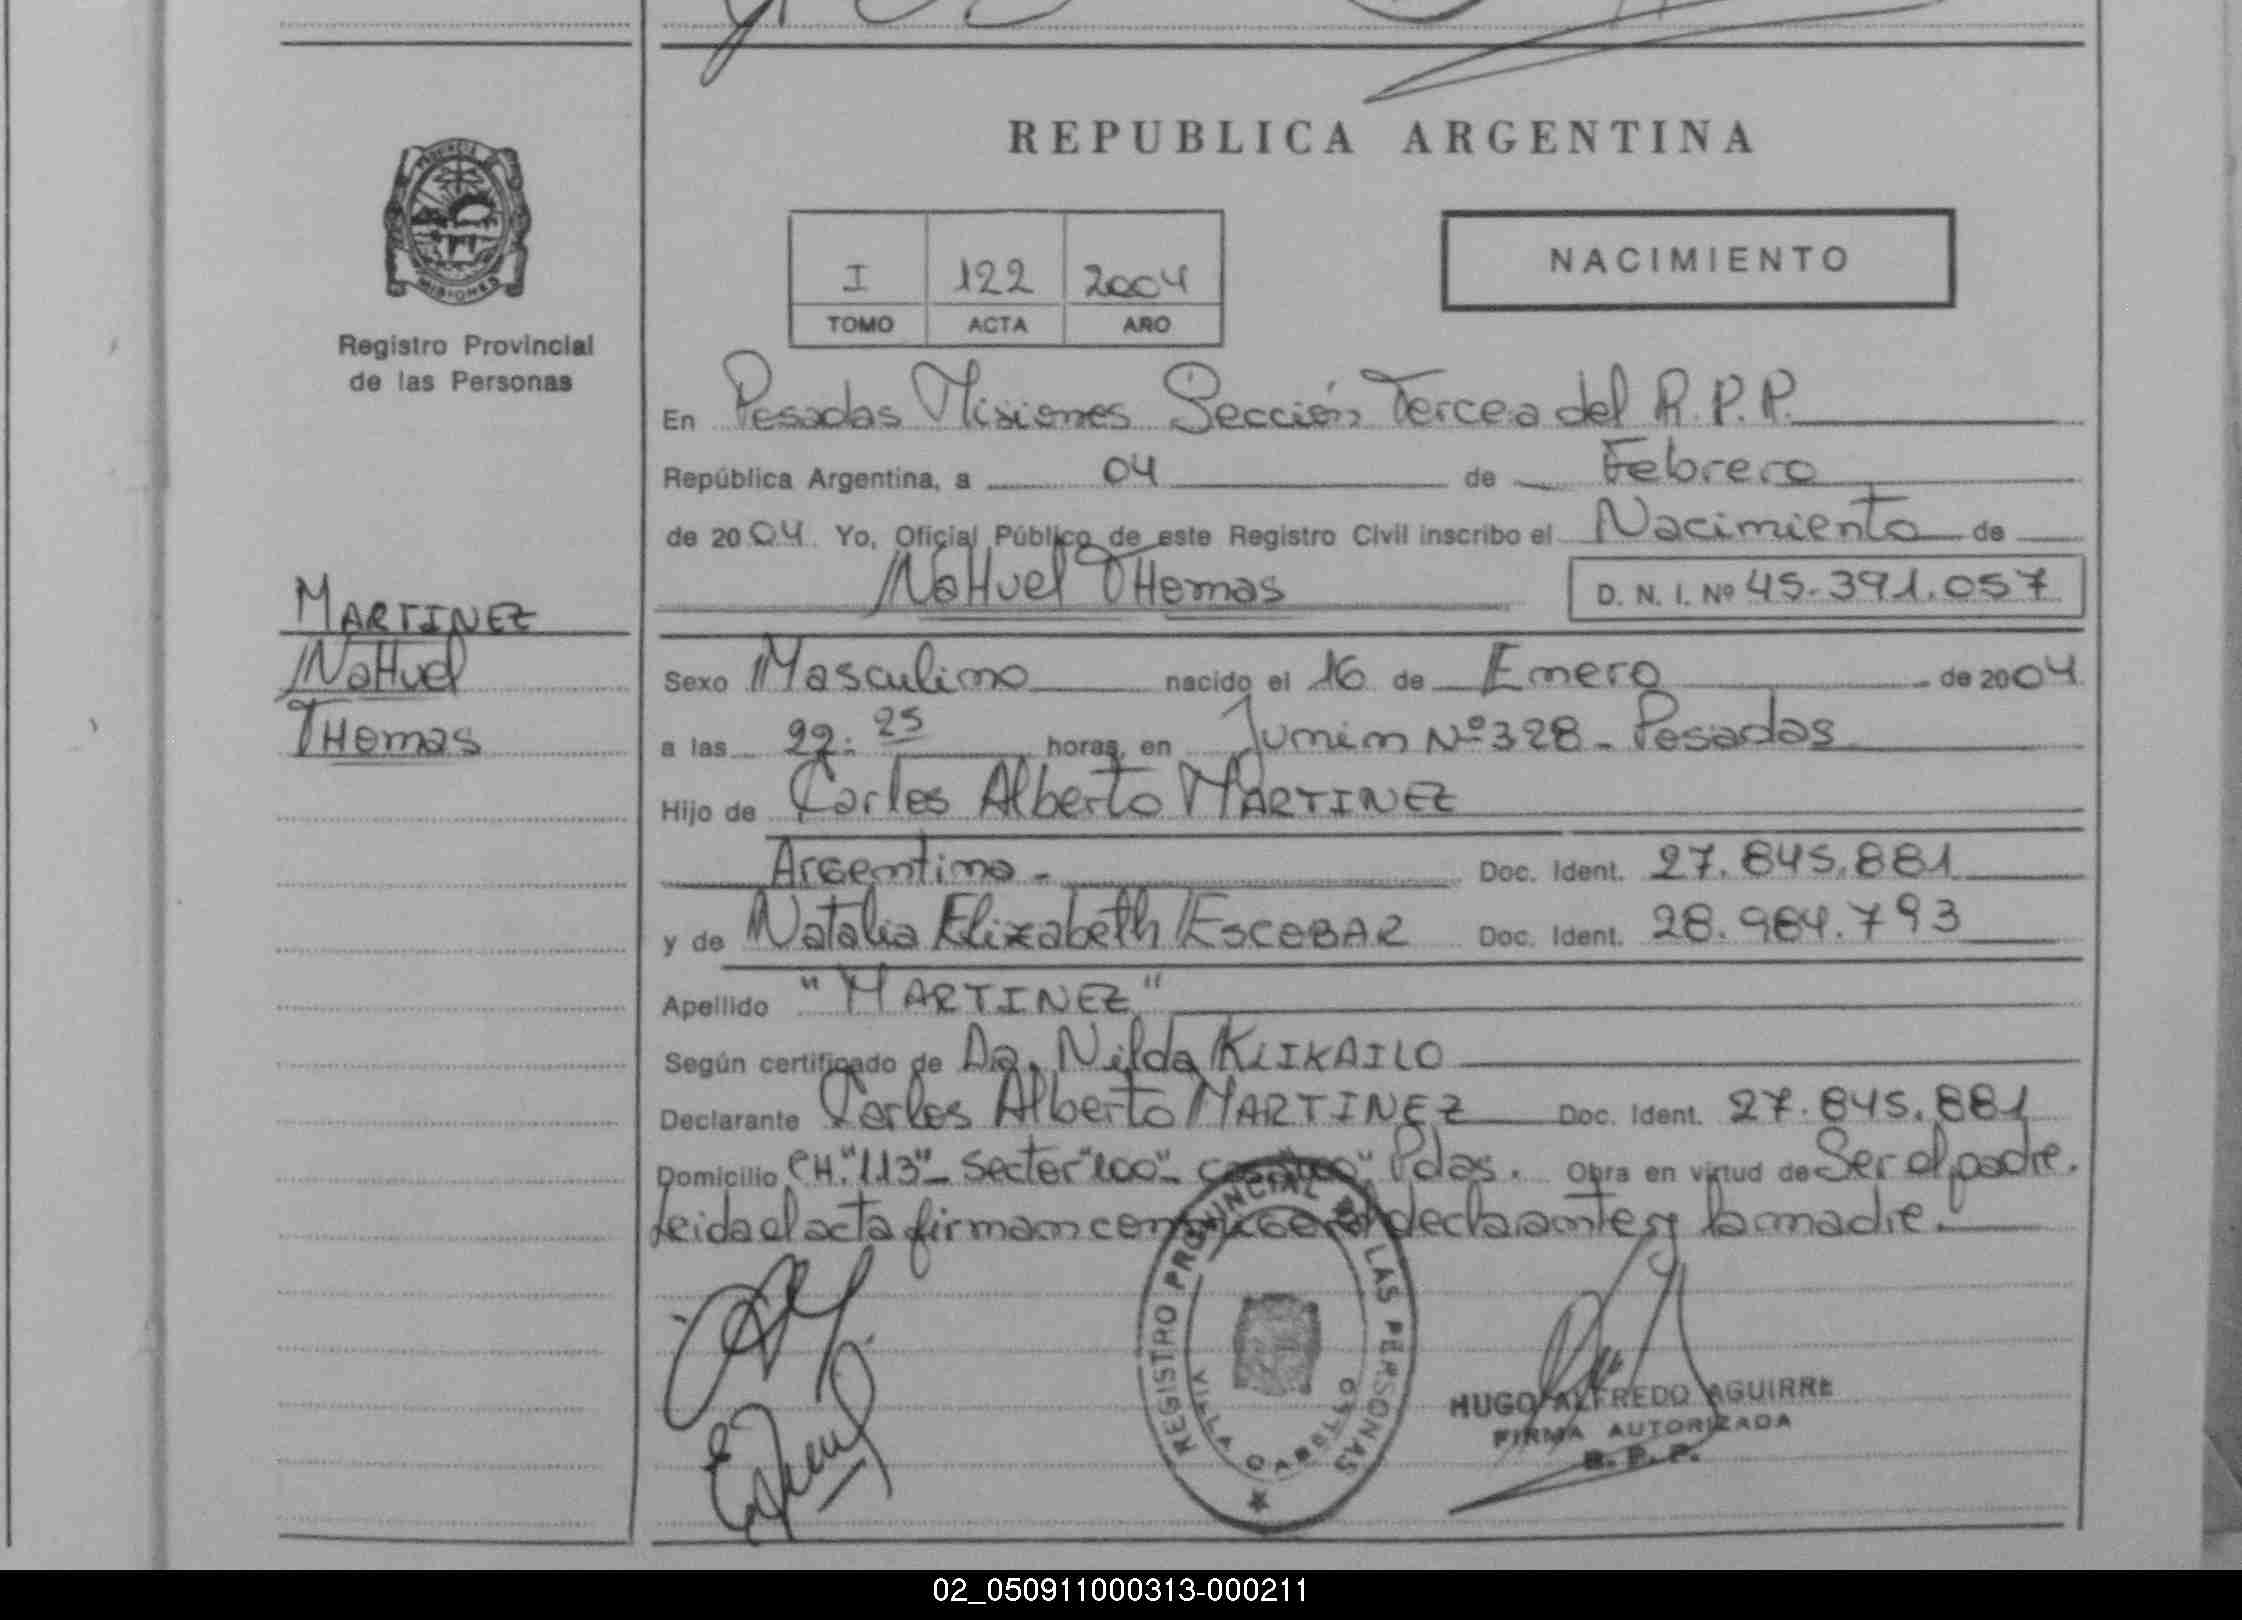 PROVINCIA DE
MISIONES
Registro Provincial
de las Personas
MARTINEZ
NaHuel
THomas
REPUBLICA ARGENTINA
I 122 2004
TOMO ACTA AÑO
NACIMIENTO
En Posadas Misiones Sección Tercera del R.P.P.
República Argentina, a 04 de Febrero
de 2004. Yo, Oficial Público de este Registro Civil inscribo el Nacimiento de
NaHuel THomas D. N. I. Nº 45.391.057
Sexo Masculino nacido el 16 de Enero de 2004
a las 22:25 horas, en Junin Nº 328 - Posadas
Hijo de Carlos Alberto MARTINEZ
Argentino - Doc. Ident. 27.845.881
y de Natalia Elizabeth ESCOBAR Doc. Ident. 28.984.793
Apellido "MARTINEZ"
Según certificado de Dra. Nilda KLIKAILO
Declarante Carlos Alberto MARTINEZ Doc. Ident. 27.845.881
Domicilio CH. "113" - Sector "100" - Pdas. Obra en virtud de Ser el padre.
Leida el acta firman conmigo el declarante y la madre.
REGISTRO PROVINCIAL DE LAS PERSONAS
VILLA CABELLO
HUGO ALFREDO AGUIRRE
FIRMA AUTORIZADA
R. P. P.
02_050911000313-000211